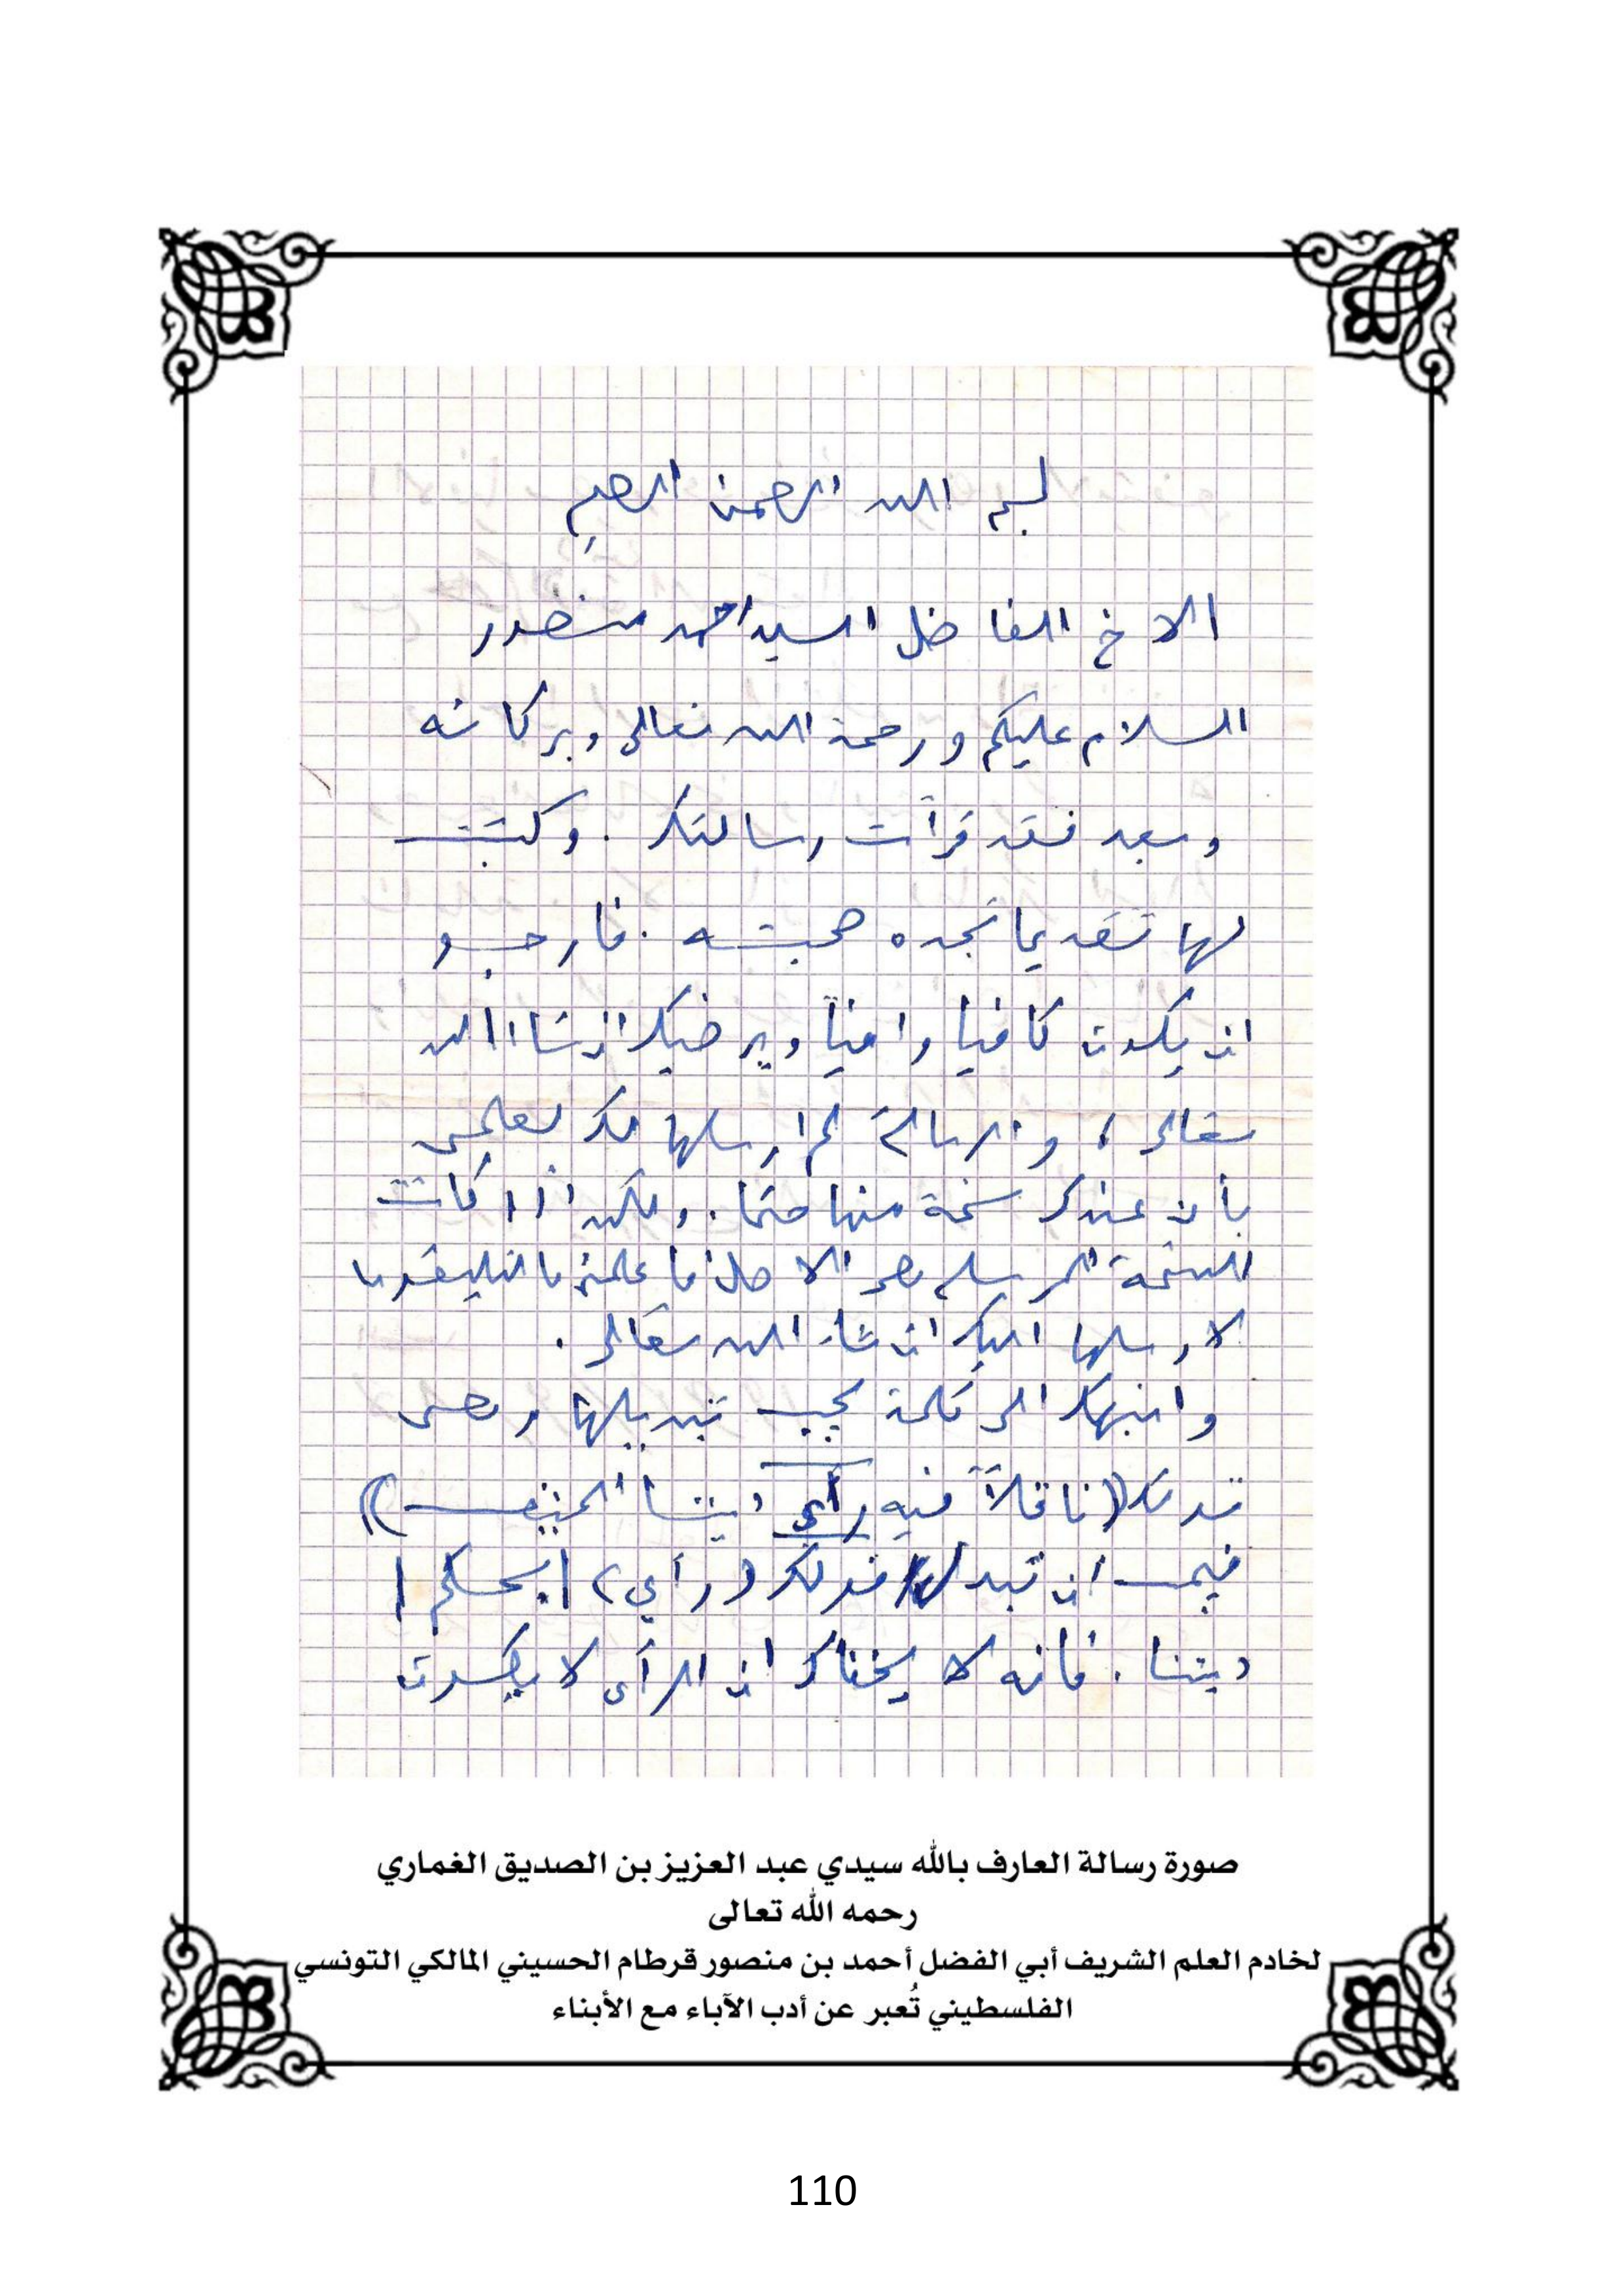 بسم الله الرحمن الرحيم
الاخ الفاضل السيد احمد منصور
السلام عليكم ورحمة الله تعالى وبركاته
وبعد فقد قرأت رسالتك . وكتبت
لها تقديما تجده صحبته . فارجو
ان يكون كافيا وافيا ويرضيك ان شاء الله
تعالى ، والرسالة لم ارسلها لك لعلمي
بأن عندك نسخة منها حتما . ولكن اذا كانت
النسخة المرسلة هي الاصل فأعلمني بالتليفون
لارسلها اليك ان شاء الله تعالى .
وانبهك الى كلمة يجب تبديلها وهى
قولك ((ناقلاً فيه رأي ديننا الحنيف))
فيجب ان تبدل قولك (رأي) | بحكم |
ديننا . فانه لا يخفاك ان الرأى لا يكون
صورة رسالة العارف بالله سيدي عبد العزيز بن الصديق الغماري
رحمه الله تعالى
لخادم العلم الشريف أبي الفضل أحمد بن منصور قرطام الحسيني المالكي التونسي
الفلسطيني تُعبر عن أدب الآباء مع الأبناء
110